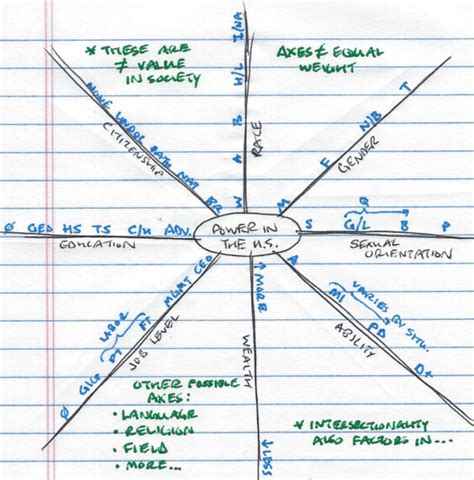 * THESE ARE
≠ VALUE
IN SOCIETY
AXES ≠ EQUAL
WEIGHT
I/NA
H/L
B
A
W
RACE
T
N/B
F
M
GENDER
NONE UNDOC. PATH NAT BR
CITIZENSHIP
Ø GED HS TS C/U ADV.
EDUCATION
POWER IN
THE U.S.
S G/L B P
Q
SEXUAL
ORIENTATION
A
MI
PD
D+
VARIES BY SITU.
ABILITY
← MORE
WEALTH
← LESS
Ø GIG PT FT MGMT CEO
LABOR
JOB LEVEL
OTHER POSSIBLE
AXES:
• LANGUAGE
• RELIGION
• FIELD
• MORE...
* INTERSECTIONALITY
ALSO FACTORS IN...